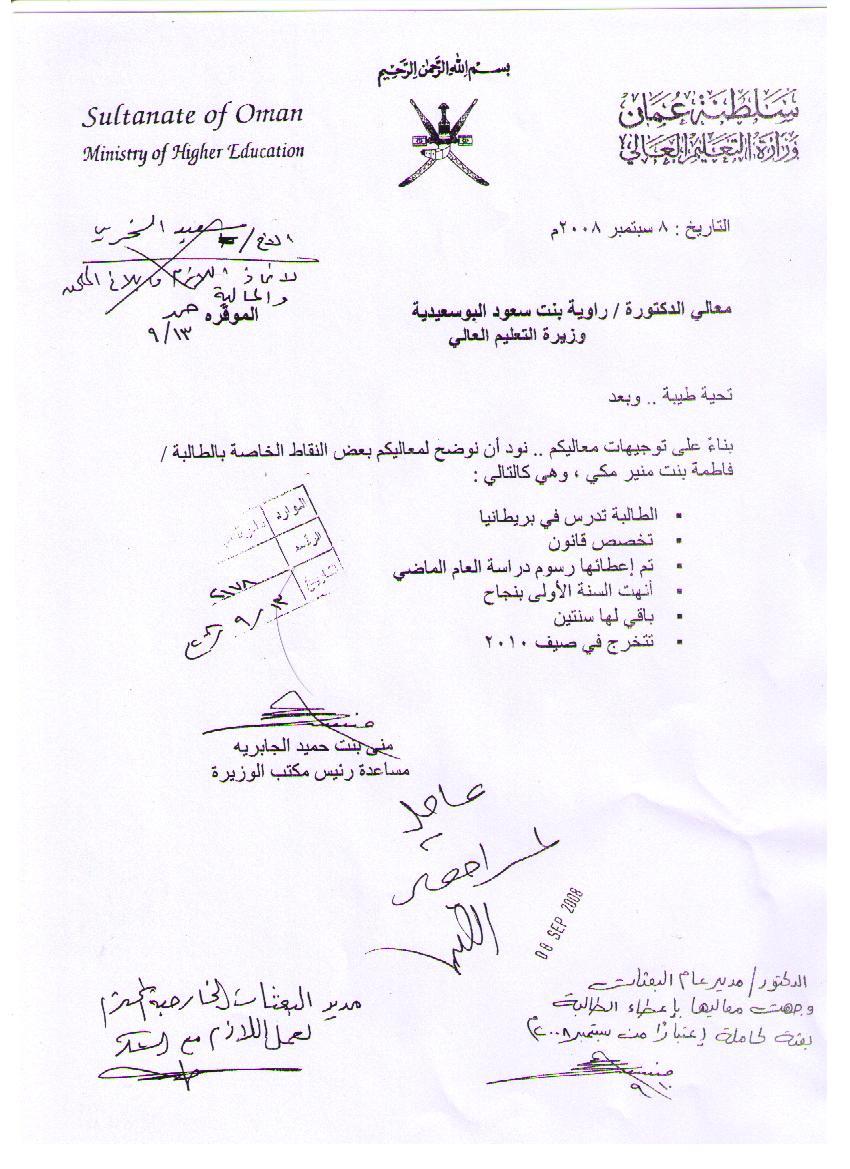 بسم الله الرحمن الرحيم
Sultanate of Oman
Ministry of Higher Education
سلطنة عمان
وزارة التعليم العالي
التاريخ : ٨ سبتمبر ٢٠٠٨م
معالي الدكتورة / راوية بنت سعود البوسعيدية الموقره
وزيرة التعليم العالي
٩/١٣
تحية طيبة .. وبعد
بناءً على توجيهات معاليكم .. نود أن نوضح لمعاليكم بعض النقاط الخاصة بالطالبة /
فاطمة بنت منير مكي ، وهي كالتالي :
▪ الطالبة تدرس في بريطانيا
▪ تخصص قانون
▪ تم إعطائها رسوم دراسة العام الماضي
▪ أنهت السنة الأولى بنجاح
▪ باقي لها سنتين
▪ تتخرج في صيف ٢٠١٠
الموارد
الرقم
التاريخ
٩/١٣
منى بنت حميد الجابريه
مساعدة رئيس مكتب الوزيرة
عاجل
08 SEP 2008
الدكتور/ مدير عام البعثات
وجهت معاليها بإعطاء الطالبة
بعثة كاملة إعتبارًا من سبتمبر ٢٠٠٨م
٩/١٠
مدير البعثات الخارجية المحترم
لعمل اللازم مع الشكر